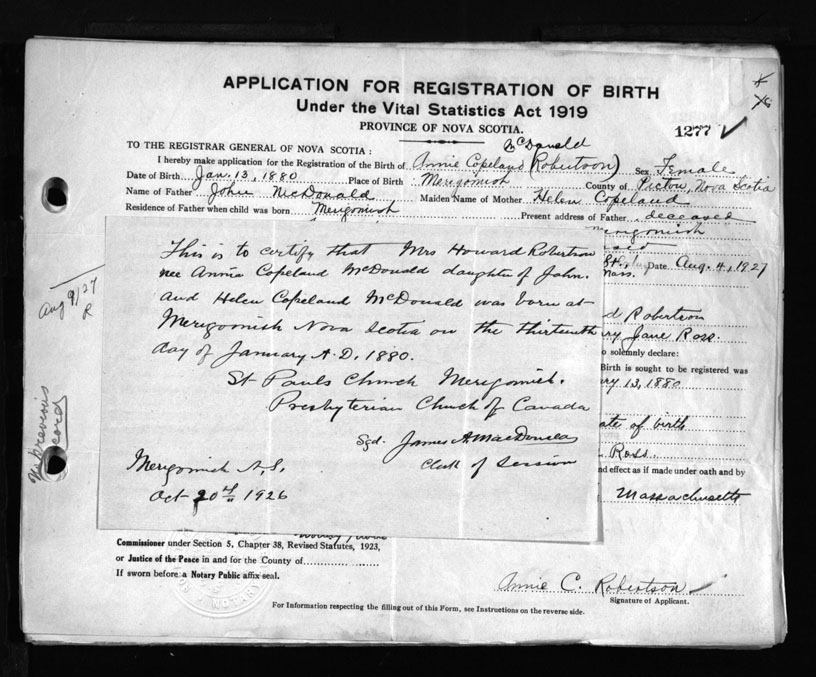 APPLICATION FOR REGISTRATION OF BIRTH
Under the Vital Statistics Act 1919
PROVINCE OF NOVA SCOTIA.
1277
TO THE REGISTRAR GENERAL OF NOVA SCOTIA:
McDonald
I hereby make application for the Registration of the Birth of Annie Copeland (Robertson) Sex Female
Date of Birth Jan. 13, 1880 Place of Birth Merigomish County of Pictou, Nova Scotia
Name of Father John McDonald Maiden Name of Mother Helen Copeland
Residence of Father when child was born Merigomish Present address of Father deceased
Merigomish
St., Date Aug. 4, 1927
Mass.
This is to certify that Mrs Howard Robertson
nee Annie Copeland McDonald daughter of John.
and Helen Copeland McDonald was born at
Merigomish Nova Scotia on the thirteenth
day of January A.D. 1880.
St Pauls Church Merigomish.
Presbyterian Church of Canada
Sgd. James A. MacDonald
Clerk of Session
Merigomish N.S.
Oct 20th 1926
Aug 9/27
R
No previous
record
d Robertson
ry Jane Ross.
o solemnly declare:
Birth is sought to be registered was
ry 13, 1880
ate of birth
Ross.
nd effect as if made under oath and by
Massachusetts
Commissioner under Section 5, Chapter 38, Revised Statutes, 1923,
or Justice of the Peace in and for the County of
If sworn before a Notary Public affix seal.
NOTARY
Annie C. Robertson
Signature of Applicant.
For Information respecting the filling out of this Form, see Instructions on the reverse side.